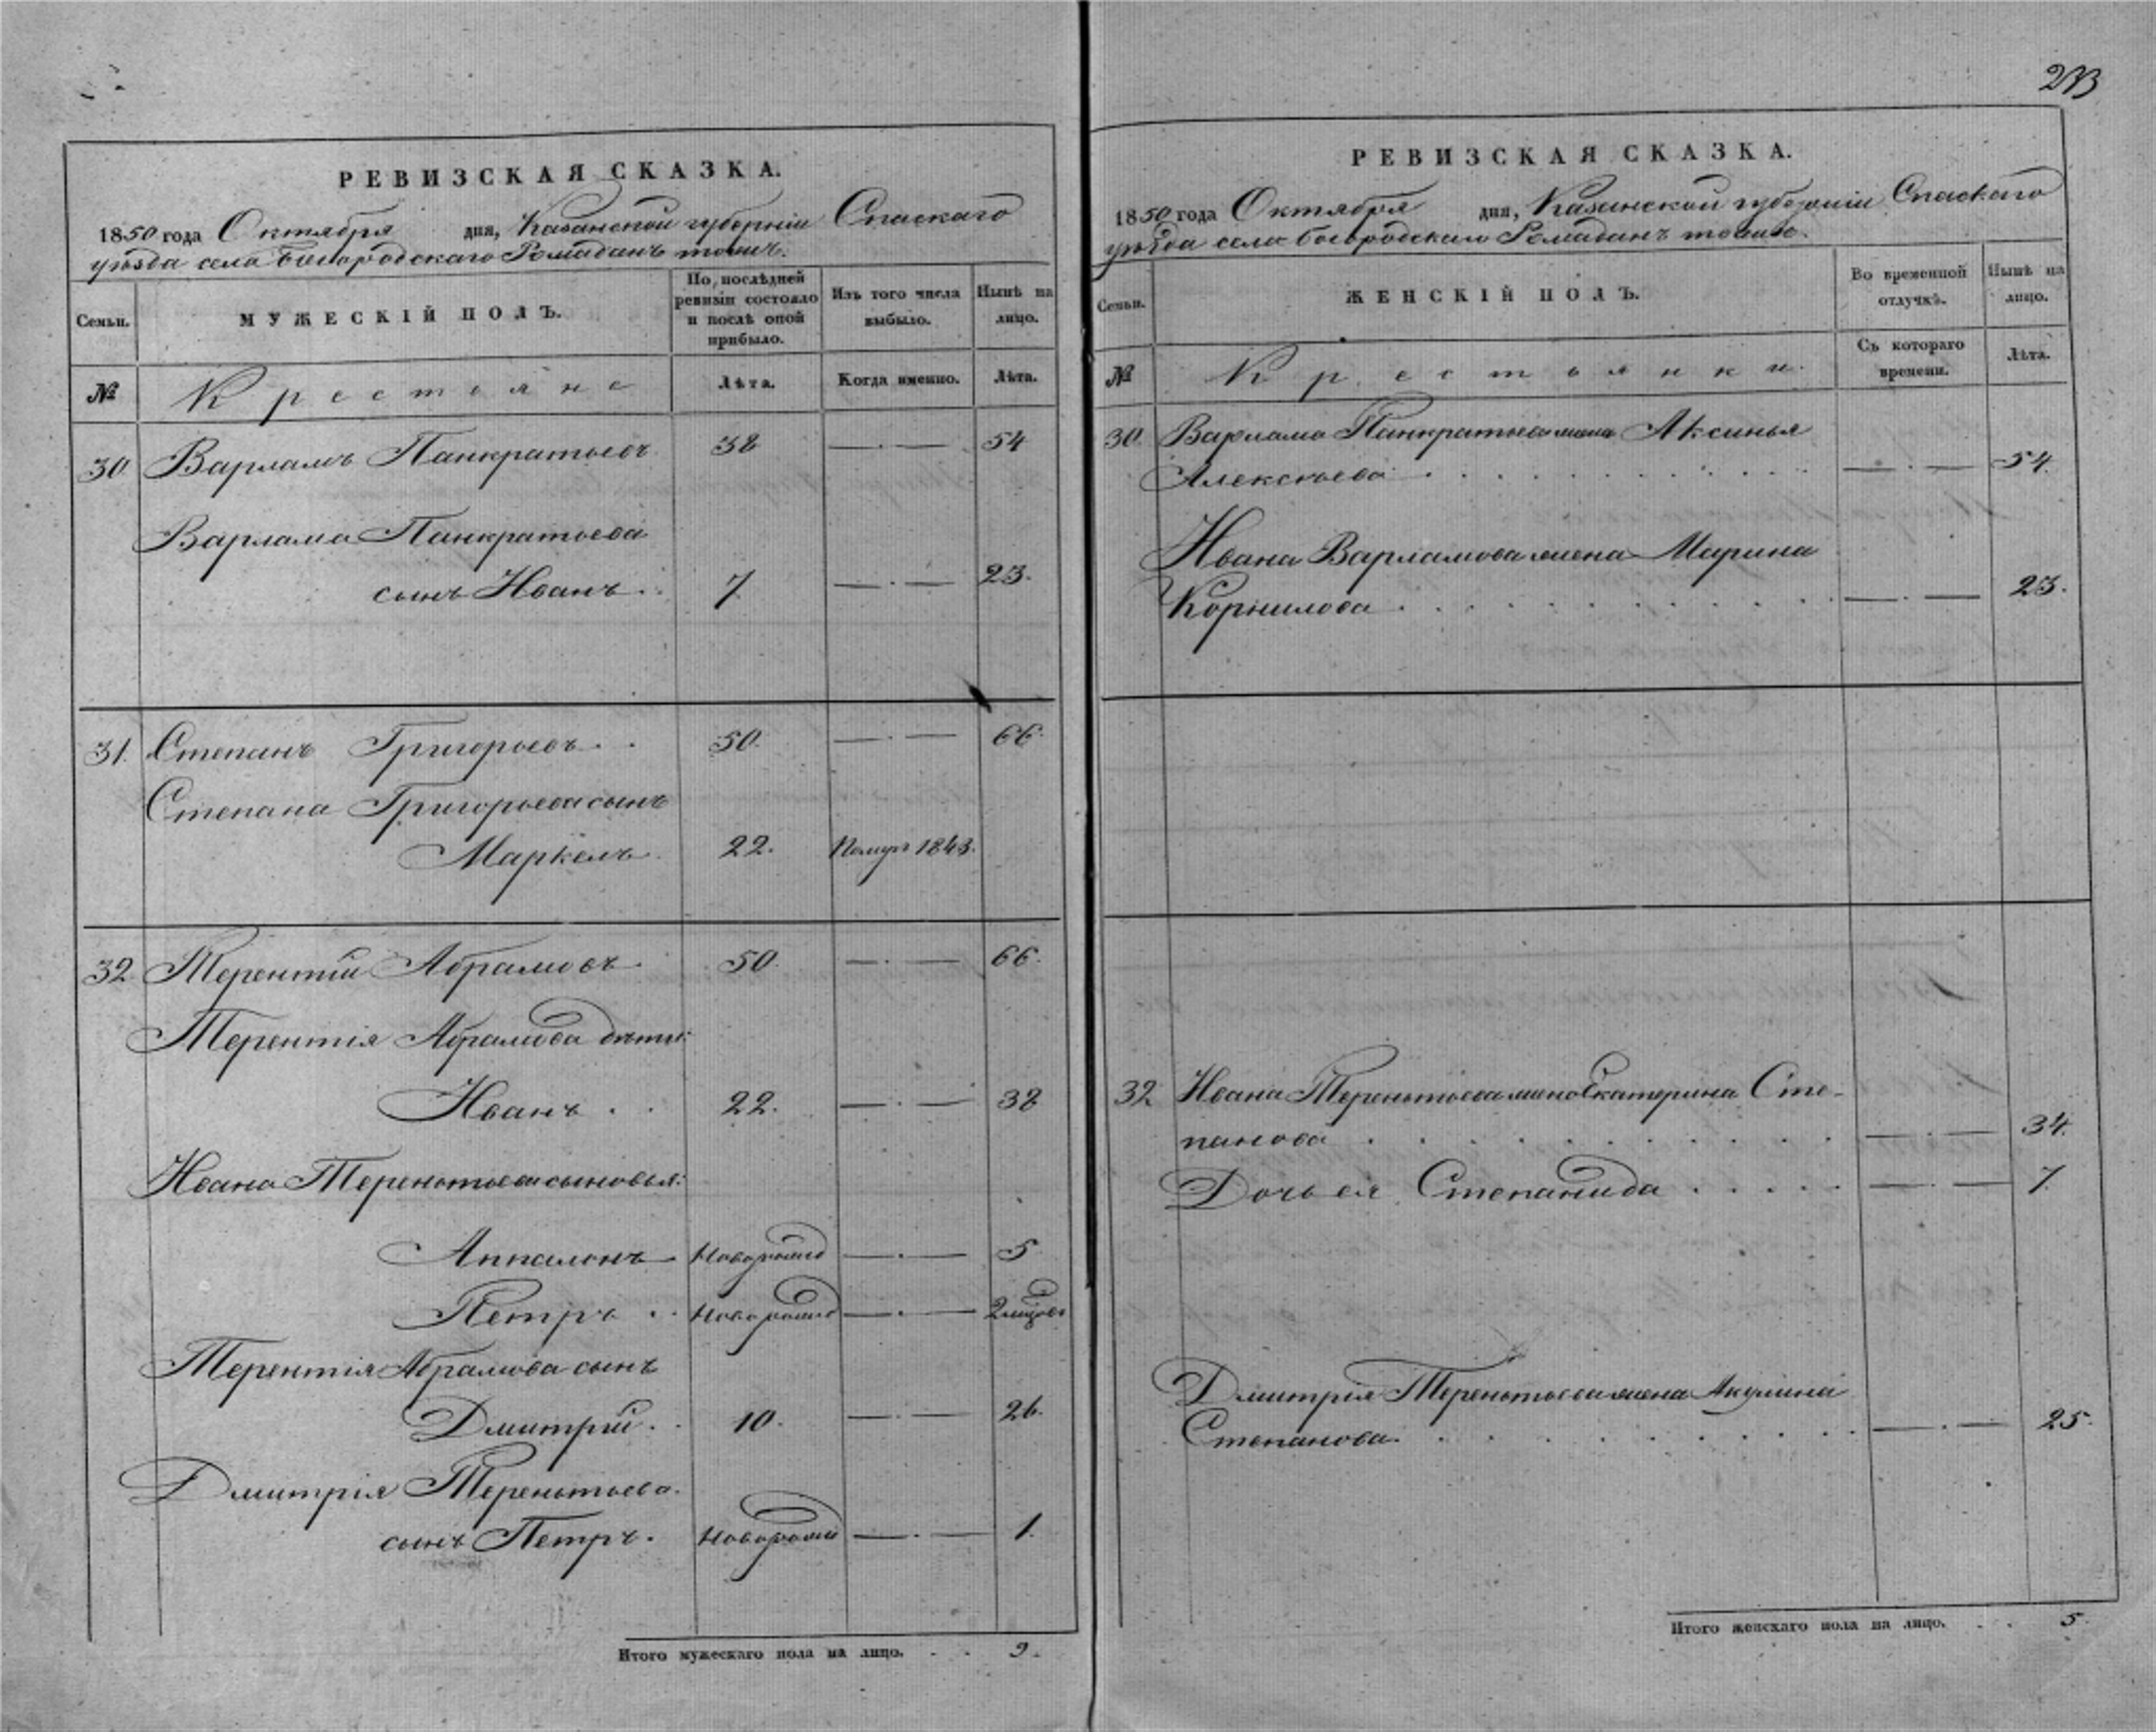 РЕВИЗСКАЯ СКАЗКА.
1850 года Октября дня, Казанской губерніи Спаскаго
уѣзда села Богородскаго Ромаданъ тожъ.
Семьи.
МУЖЕСКІЙ ПОЛЪ.
По послѣдней ревизіи состояло и послѣ оной прибыло.
Изъ того числа выбыло.
Нынѣ на лицо.
№
Крестьяне
Лѣта.
Когда именно.
Лѣта.
30 Варламъ Панкратьевъ 38 54
Варлама Панкратьева
сынъ Иванъ. 7 23.
31. Степанъ Григорьевъ. 50. 66.
Степана Григорьева сынъ
Маркелъ. 22. Померъ 1843.
32 Терентій Абрамовъ. 50. 66.
Терентія Абрамова дѣти:
Иванъ 22. 38
Ивана Терентьева сыновья:
Аппалонъ Новорожд 5
Петръ Новорожд 2 мѣсяцовъ
Терентія Абрамова сынъ
Дмитрій. 10. 26.
Дмитрія Терентьева
сынъ Петръ. Новорожд 1.
Итого мужескаго пола на лицо. 9.
233
РЕВИЗСКАЯ СКАЗКА.
1850 года Октября дня, Казанской губерніи Спаскаго
уѣзда села Богородскаго Ромаданъ тожъ.
Семьи.
ЖЕНСКІЙ ПОЛЪ.
Во временной отлучкѣ.
Нынѣ на лицо.
№
Крестьянки.
Съ котораго времени.
Лѣта.
30. Варлама Панкратьева жена Аксинья
Алексѣева 54.
Ивана Варламова жена Марина
Корнилова 23.
32 Ивана Терентьева жена Екатерина Сте-
панова 34.
Дочь ея Степанида 7.
Дмитрія Терентьева жена Акулина
Степанова. 25.
Итого женскаго пола на лицо. 5.